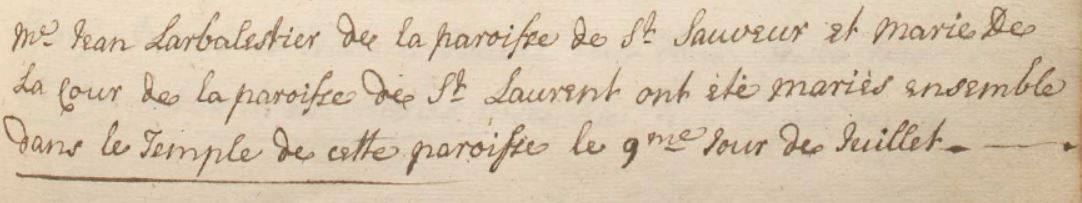 Mr. Jean Larbalestier de la paroisse de St. Sauveur et Marie De
La Cour de la paroisse de St. Laurent ont eté mariés ensemble
dans le Temple de cette paroisse le 9me Jour de Juillet. — .